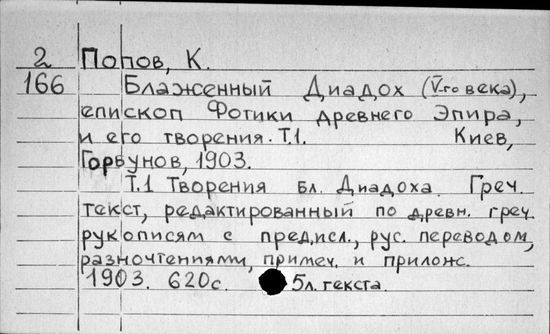 2 Попов, К.
166 Блаженный Диадох (V-го века),
епископ Фотики древнего Эпира,
и его творения. Т.1. Киев,
Горбунов, 1903.
Т.1 Творения бл. Диадоха. Греч.
текст, редактированный по древн. греч.
рукописям с предисл., рус. переводом,
разночтениями, примеч. и прилож.
1903. 620с. 5л. текста.